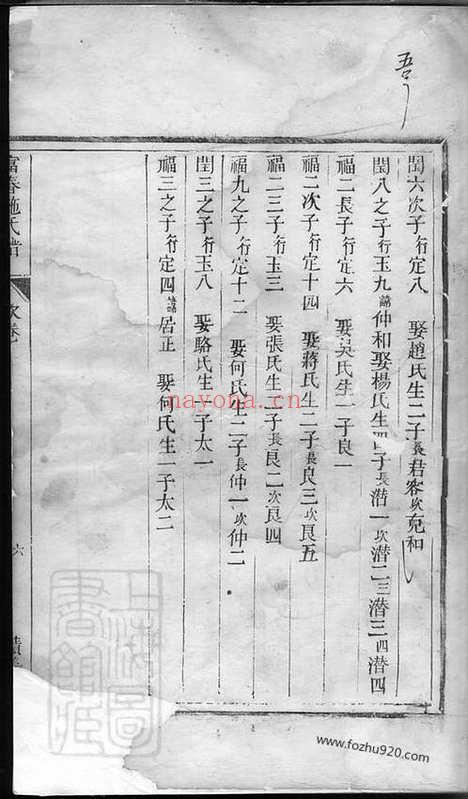 吾
閏六次子行定八 娶趙氏生二子長君客次克和
閏八之子行玉九諱仲和娶楊氏生四子長潜一次潜二三潜三四潜四
福二長子行定六 娶吳氏生一子良一
福二次子行定十四 娶蔣氏生二子長良三次良五
福二三子行玉三 娶張氏生二子長良二次良四
福九之子行定十二 娶何氏生二子長仲一次仲二
閏三之子行玉八 娶駱氏生一子太一
福三之子行定四諱居正 娶何氏生一子太二
富春施氏譜
六
上海圖書館藏
nayona.cn
www.fozhu920.com